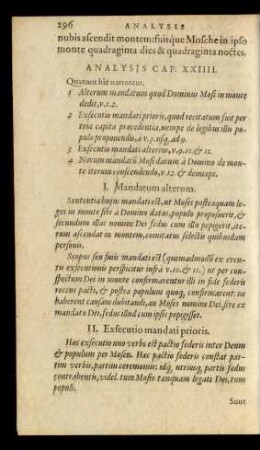 296 ANALYSIS
nubis ascendit montem: fuitque Mosche in ipso
monte quadraginta dies & quadraginta noctes.
ANALYSIS CAP. XXIIII.
Quatuor hîc narrantur.
1 Alterum mandatum quod Dominus Mosi in monte
dedit, v.1.2.
2 Exsecutio mandati prioris, quod recitatum fuit per
tria capita præcedentia, nempe de legibus illu po-
pulo proponendis, à v.3. usq, ad 9.
3 Exsecutio mandati alterius, v.9.10. & 11.
4 Novum mandatũ Mosi datum à Domino de mon-
te iterum conscendendo, v.12. & deinceps.
I. Mandatum alterum.
Sententia hujus mandati est, ut Moses postea quam le-
ges in monte sibi à Domino datas, populo proposuerit, &
secundum illas nomine Dei fedus cum illo pepigerit, ite-
rum ascendat in montem, comitatus selectis quibusdam
personis.
Scopus seu finis mandati est (quemadmodũ ex even-
tu exsecutionis perspicitur infrà v.10. & 11.) ut per con-
spectum Dei in monte confirmarentur illi in fide federis
recens pacti, & postea populum quoq, confirmarent: ne
haberent causam dubitandi, an Moses nomine Dei, sive ex
mandato Dei, fedus illud cum ipsis pepigisset.
II. Exsecutio mandati prioris.
Hæc exsecutio uno verbo est pactio federis inter Deum
& populum per Mosen. Hæc pactio federis constat par-
tim verbis, partim ceremoniis: idq, utriusq, partis fedus
contrahentis, videl. tum Mosis tanquam legati Dei, tum
populi.
Sunt